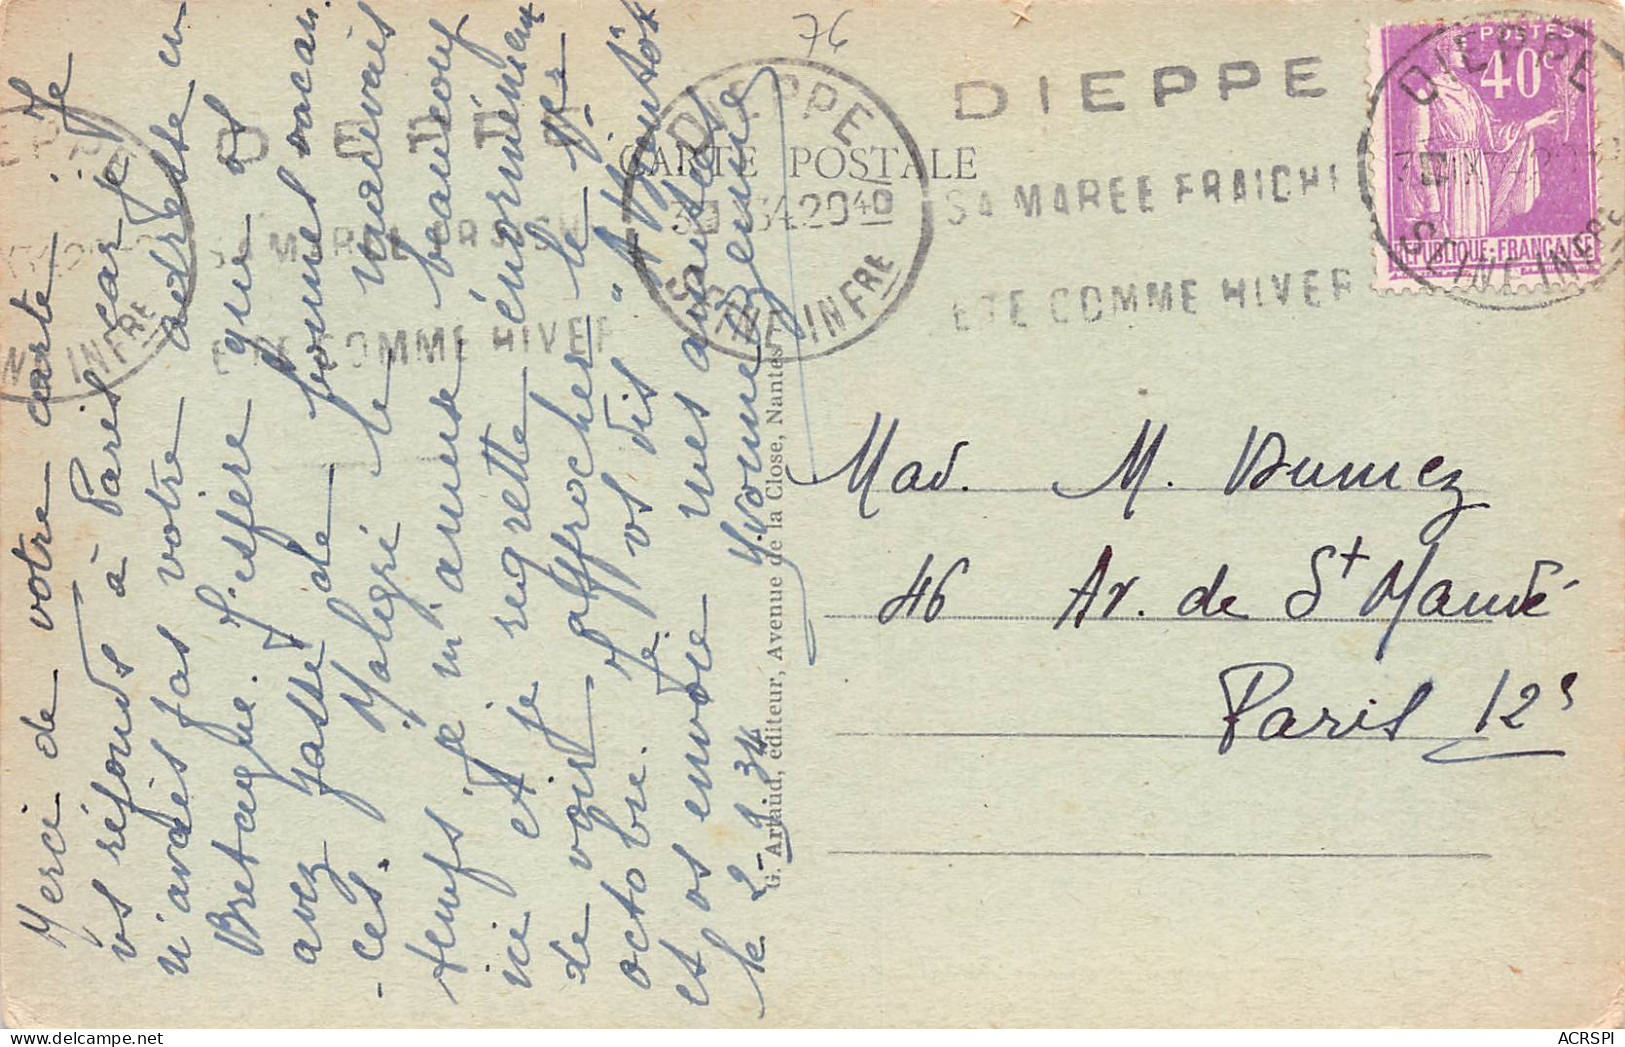 76
CARTE POSTALE
DIEPPE
30 34 20 40
SEINE INFRE
DIEPPE
SA MAREE FRAICHE
ETE COMME HIVER
POSTES
40c
REPUBLIQUE-FRANÇAISE
DIEPPE
SEINE INFRE
SA MAREE FRAICH
ETE COMME HIVER
INFRE
Merci de votre carte. Je
vs réponds à Paris car je
n'avais pas votre adresse en
Bretagne. J'espère que vs
avez passé de bonnes vacan
-ces. Malgré le mauvais
temps je m'amuse beaucoup
ici et je regrette énormément
de voir approcher le 1er
octobre. Je vs dis "A bientôt"
et vs envoie mes amitiés
Yvonne
le 2-9-34
G. Artaud, éditeur, Avenue de la Close, Nantes
Mad. M. Dumez
46 Av. de St Mandé
Paris 12e
ACRSPI